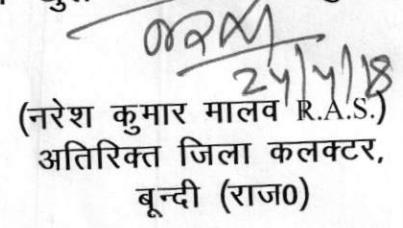 24/4/18
(नरेश कुमार मालव R.A.S.)
अतिरिक्त जिला कलक्टर,
बून्दी (राज0)